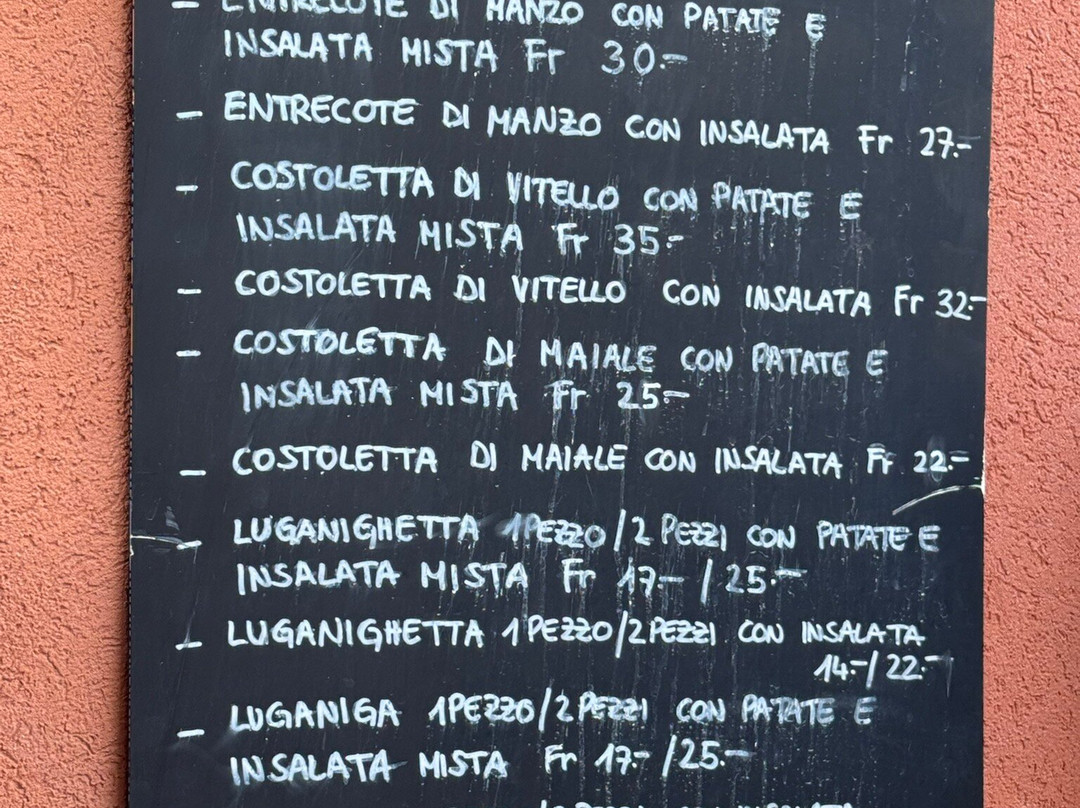 - ENTRECOTE DI MANZO CON PATATE E
INSALATA MISTA Fr 30.-
- ENTRECOTE DI MANZO CON INSALATA Fr 27.-
- COSTOLETTA DI VITELLO CON PATATE E
INSALATA MISTA Fr 35.-
- COSTOLETTA DI VITELLO CON INSALATA Fr 32.-
- COSTOLETTA DI MAIALE CON PATATE E
INSALATA MISTA Fr 25.-
- COSTOLETTA DI MAIALE CON INSALATA Fr 22.-
- LUGANIGHETTA 1 PEZZO/2 PEZZI CON PATATE E
INSALATA MISTA Fr 17.- / 25.-
- LUGANIGHETTA 1 PEZZO/2 PEZZI CON INSALATA
14.-/22.-
- LUGANIGA 1 PEZZO/2 PEZZI CON PATATE E
INSALATA MISTA Fr 17.- /25.-